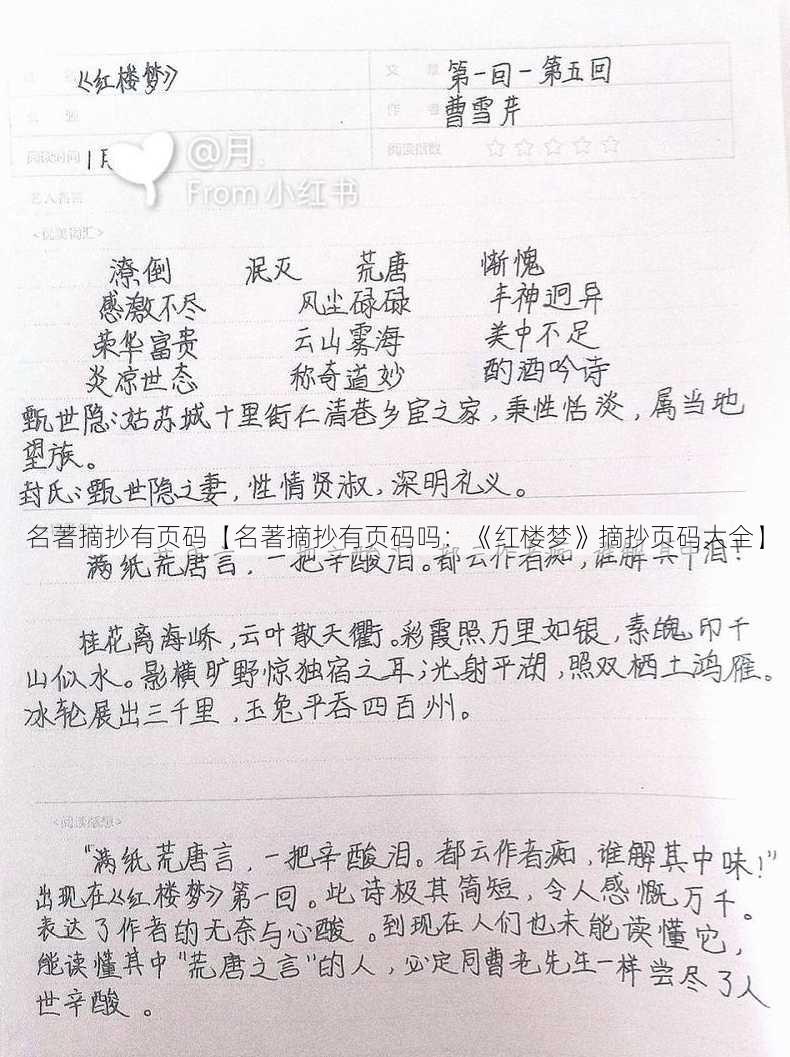 《红楼梦》
文 章 第一回一第五回
作 者 曹雪芹
阅读时间 1月
阅读指数 ☆☆☆☆☆
@月.
From 小红书
名人名言
<优美词汇>
潦倒 泯灭 荒唐 惭愧
感激不尽 风尘碌碌 丰神迥异
荣华富贵 云山雾海 美中不足
炎凉世态 称奇道妙 酌酒吟诗
甄世隐:姑苏城十里街仁清巷乡宦之家,秉性恬淡,属当地
望族。
封氏:甄世隐之妻,性情贤淑,深明礼义。
名著摘抄有页码【名著摘抄有页码吗:《红楼梦》摘抄页码大全】
满纸荒唐言,一把辛酸泪。都云作者痴,谁解其中泪!
桂花离海峤,云叶散天衢。彩霞照万里如银,素魄印千
山似水。影横旷野惊独宿之耳;光射平湖,照双栖土鸿雁。
冰轮展出三千里,玉兔平吞四百州。
<阅读感想>
“满纸荒唐言,一把辛酸泪。都云作者痴,谁解其中味!”
出现在《红楼梦》第一回。此诗极其简短,令人感慨万千。
表达了作者的无奈与心酸。到现在人们也未能读懂它,
能读懂其中“荒唐之言”的人,必定同曹老先生一样尝尽了人
世辛酸。